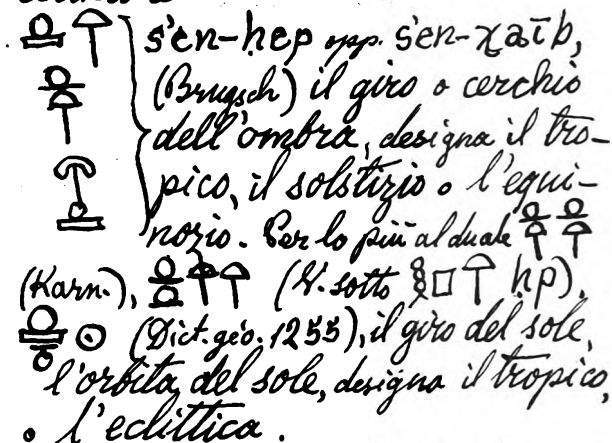 s'en-ḥep opp. s'en-χaīb,
(Brugsch) il giro o cerchio
dell'ombra, designa il tro-
pico, il solstizio o l'equi-
nozio. Per lo più al duale
(Karn.), (V. sotto ḥp).
(Dict. géo. 1255), il giro del sole,
l'orbita del sole, designa il tropico,
o l'eclittica.